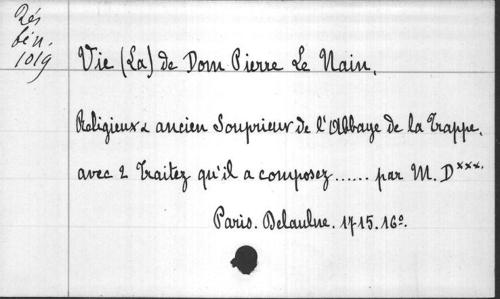 Rés
bén.
1019
Vie (La) de Dom Pierre Le Nain,
Religieux & ancien Souprieur de l'Abbaye de la Trappe,
avec 2 Traitez qu'il a composez...... par M. D***.
Paris. Delaulne. 1715. 16º.